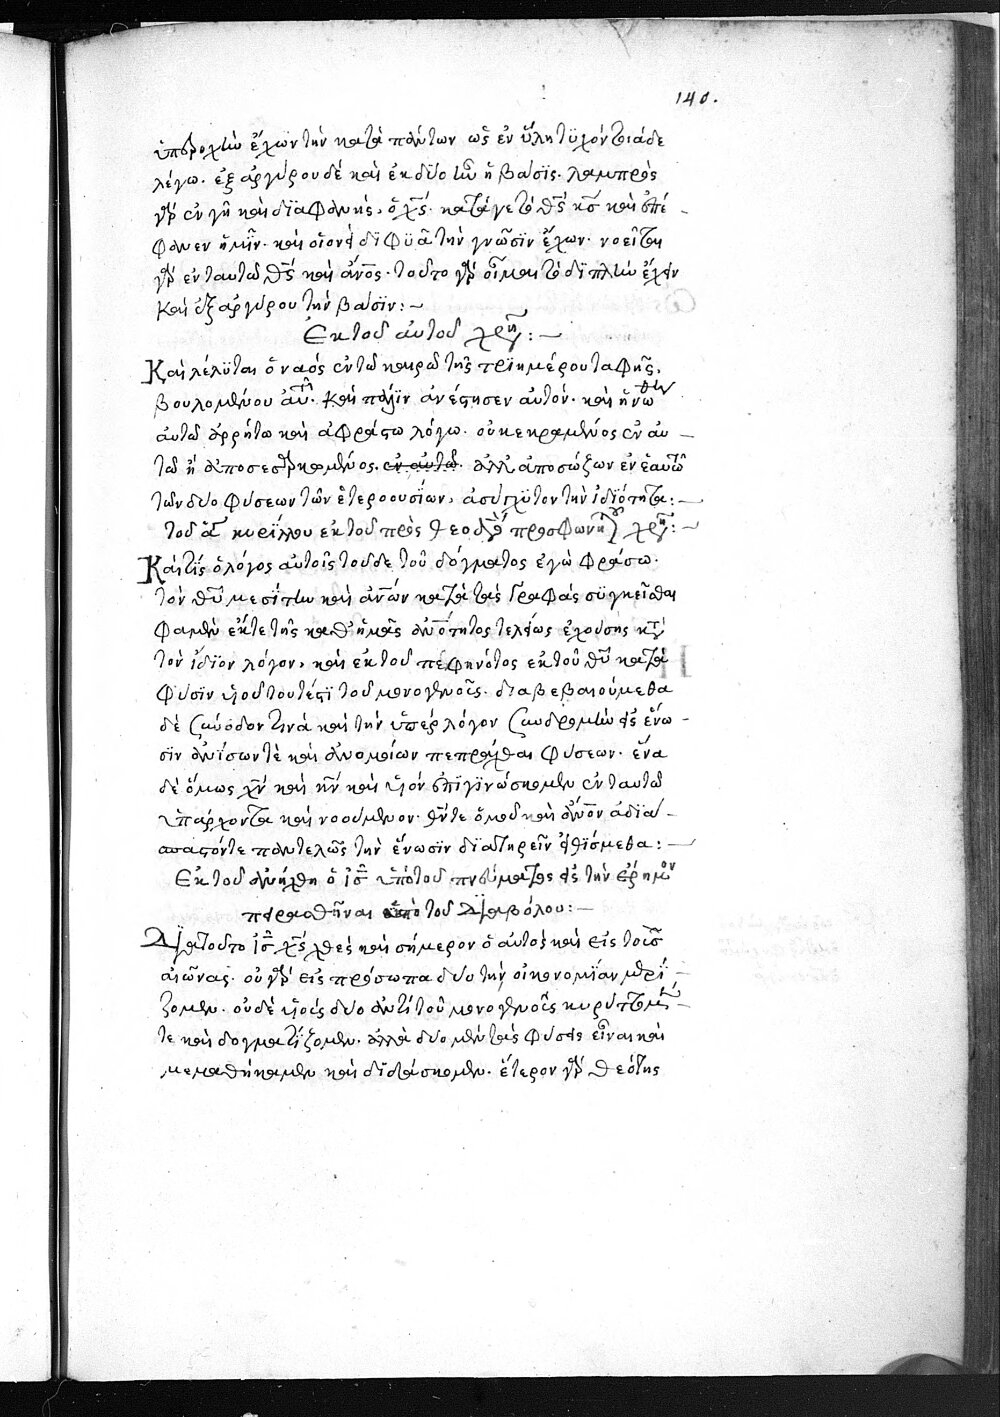 140.
ὑπεροχὴν ἔχων τὴν κατὰ πάντων ὡς ἐν ὕλη τϋχὸν τιάδε
λέγω. ἐξ ἀργύρου δὲ καὶ ἐκ δύο ἦν ἡ βάσϊς. λαμπρὸς
γὰρ ἐν γῆ καὶ διαφανὴς, ὁ χς. κατάγετο θς κς καὶ ἐπέ-
φανεν ἡμῖν. καὶ οἱονεὶ διφυᾶ τὴν γνῶσϊν ἔχων. νοεῖται
γὰρ ἐν ταυτῶ θς καὶ ἄνος. τοῦτο γὰρ οἶμαι τὸ διπλῆν ἔχειν
καὶ ἐξ ἀργύρου τὴν βάσϊν:~
Ἐκ τοῦ αὐτοῦ χρη:~
Καὶ λέλϋται ὁ ναὸς ἐν τῶ καιρῶ τῆς τριημέρου ταφῆς,
βουλομένου αὐτ. καὶ πάλϊν ἀνέστησεν αὐτόν. καὶ ἡνώθη
αὐτῶ ἀρρήτω καὶ ἀφράστω λόγω. οὐ κεκραμένος ἐν αὐ-
τῶ ἢ ἀποσεσαρκωμένος. ἐν αὐτῶ. ἀλλ ἀποσώζων ἐν ἑαυτῶ
τῶν δύο φύσεων τῶν ἑτεροουσίων, ἀσύγχϋτον τὴν ἰδϊότητα:~
τοῦ ἁγ κυρίλλου ἐκ τοῦ πρὸς θεοδο προσφωνη χρη:~
Καὶ τίς ὁ λόγος αὐτοῖς τοῦδε τοῦ δόγματος ἐγὼ φράσω.
τὸν θυ μεσίτην καὶ ἀνων κατὰ τὰς γραφὰς συγκεῖσθαι
φαμὲν ἔκ τε τῆς καθ ἡμᾶς ἀνοτητος τελείως ἐχούσης κατ
τὸν ἴδϊον λόγον, καὶ ἐκ τοῦ πεφηνότος ἐκ τοῦ θυ κατὰ
φύσϊν υἱοῦ τουτέστι τοῦ μονογενοῦς. διαβεβαιούμεθα
δὲ σύνοδον τινὰ καὶ τὴν ὑπὲρ λόγον συνδρομὴν εἰς ἕνω-
σϊν ἀνίσων τὲ καὶ ἀνομοίων πεπράχθαι φύσεων. ἕνα
δὲ ὅμως χν καὶ κν καὶ υἱὸν ἐπϊγϊνώσκομεν ἐν ταυτῶ
ὑπάρχοντα καὶ νοούμενον. θν τε ὁμοῦ καὶ ἄνον ἀδϊά-
σπαστόν τε παντελῶς τὴν ἕνωσϊν διατηρεῖν εἰθίσμεθα:~
Ἐκ τοῦ ἀνήχθη ὁ ις ὑπὸ τοῦ πνεύματος εἰς τὴν ἔρημον
πειρασθῆναι ὑπὸ τοῦ διαβόλου:~
Διὰ τοῦτο ις χς χθὲς καὶ σήμερον ὁ αὐτὸς καὶ εἰς τοὺς
αἰῶνας. οὐ γὰρ εἰς πρόσωπα δύο τὴν οἰκονομίαν μερί-
ζομεν. οὐδὲ υἱοὺς δύο ἀντὶ τοῦ μονογενοῦς κηρύττομέν
τε καὶ δογματίζομεν. ἀλλὰ δύο μὲν τὰς φύσεις εἶναι καὶ
μεμαθήκαμεν καὶ διδάσκομεν. ἕτερον γὰρ θεότης